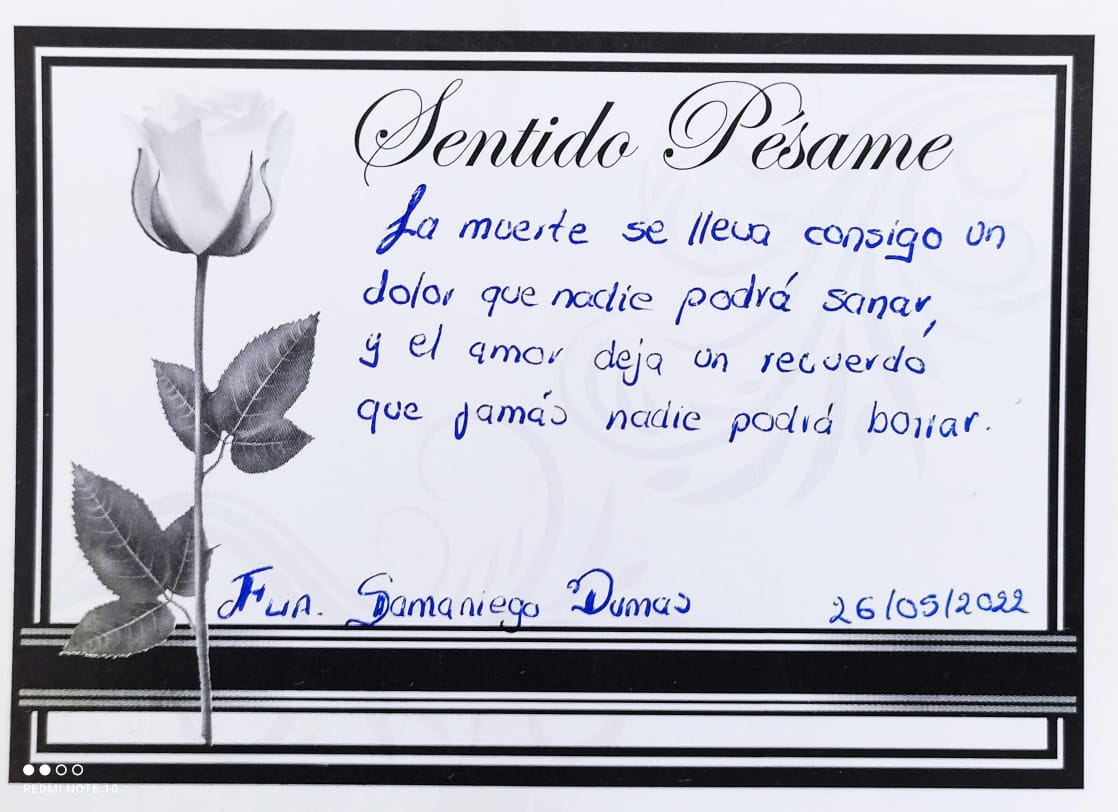 Sentido Pésame
La muerte se lleva consigo un
dolor que nadie podrá sanar,
y el amor deja un recuerdo
que jamás nadie podrá borrar.
Fun. Samaniego Dumas 26/05/2022
REDMI NOTE 10